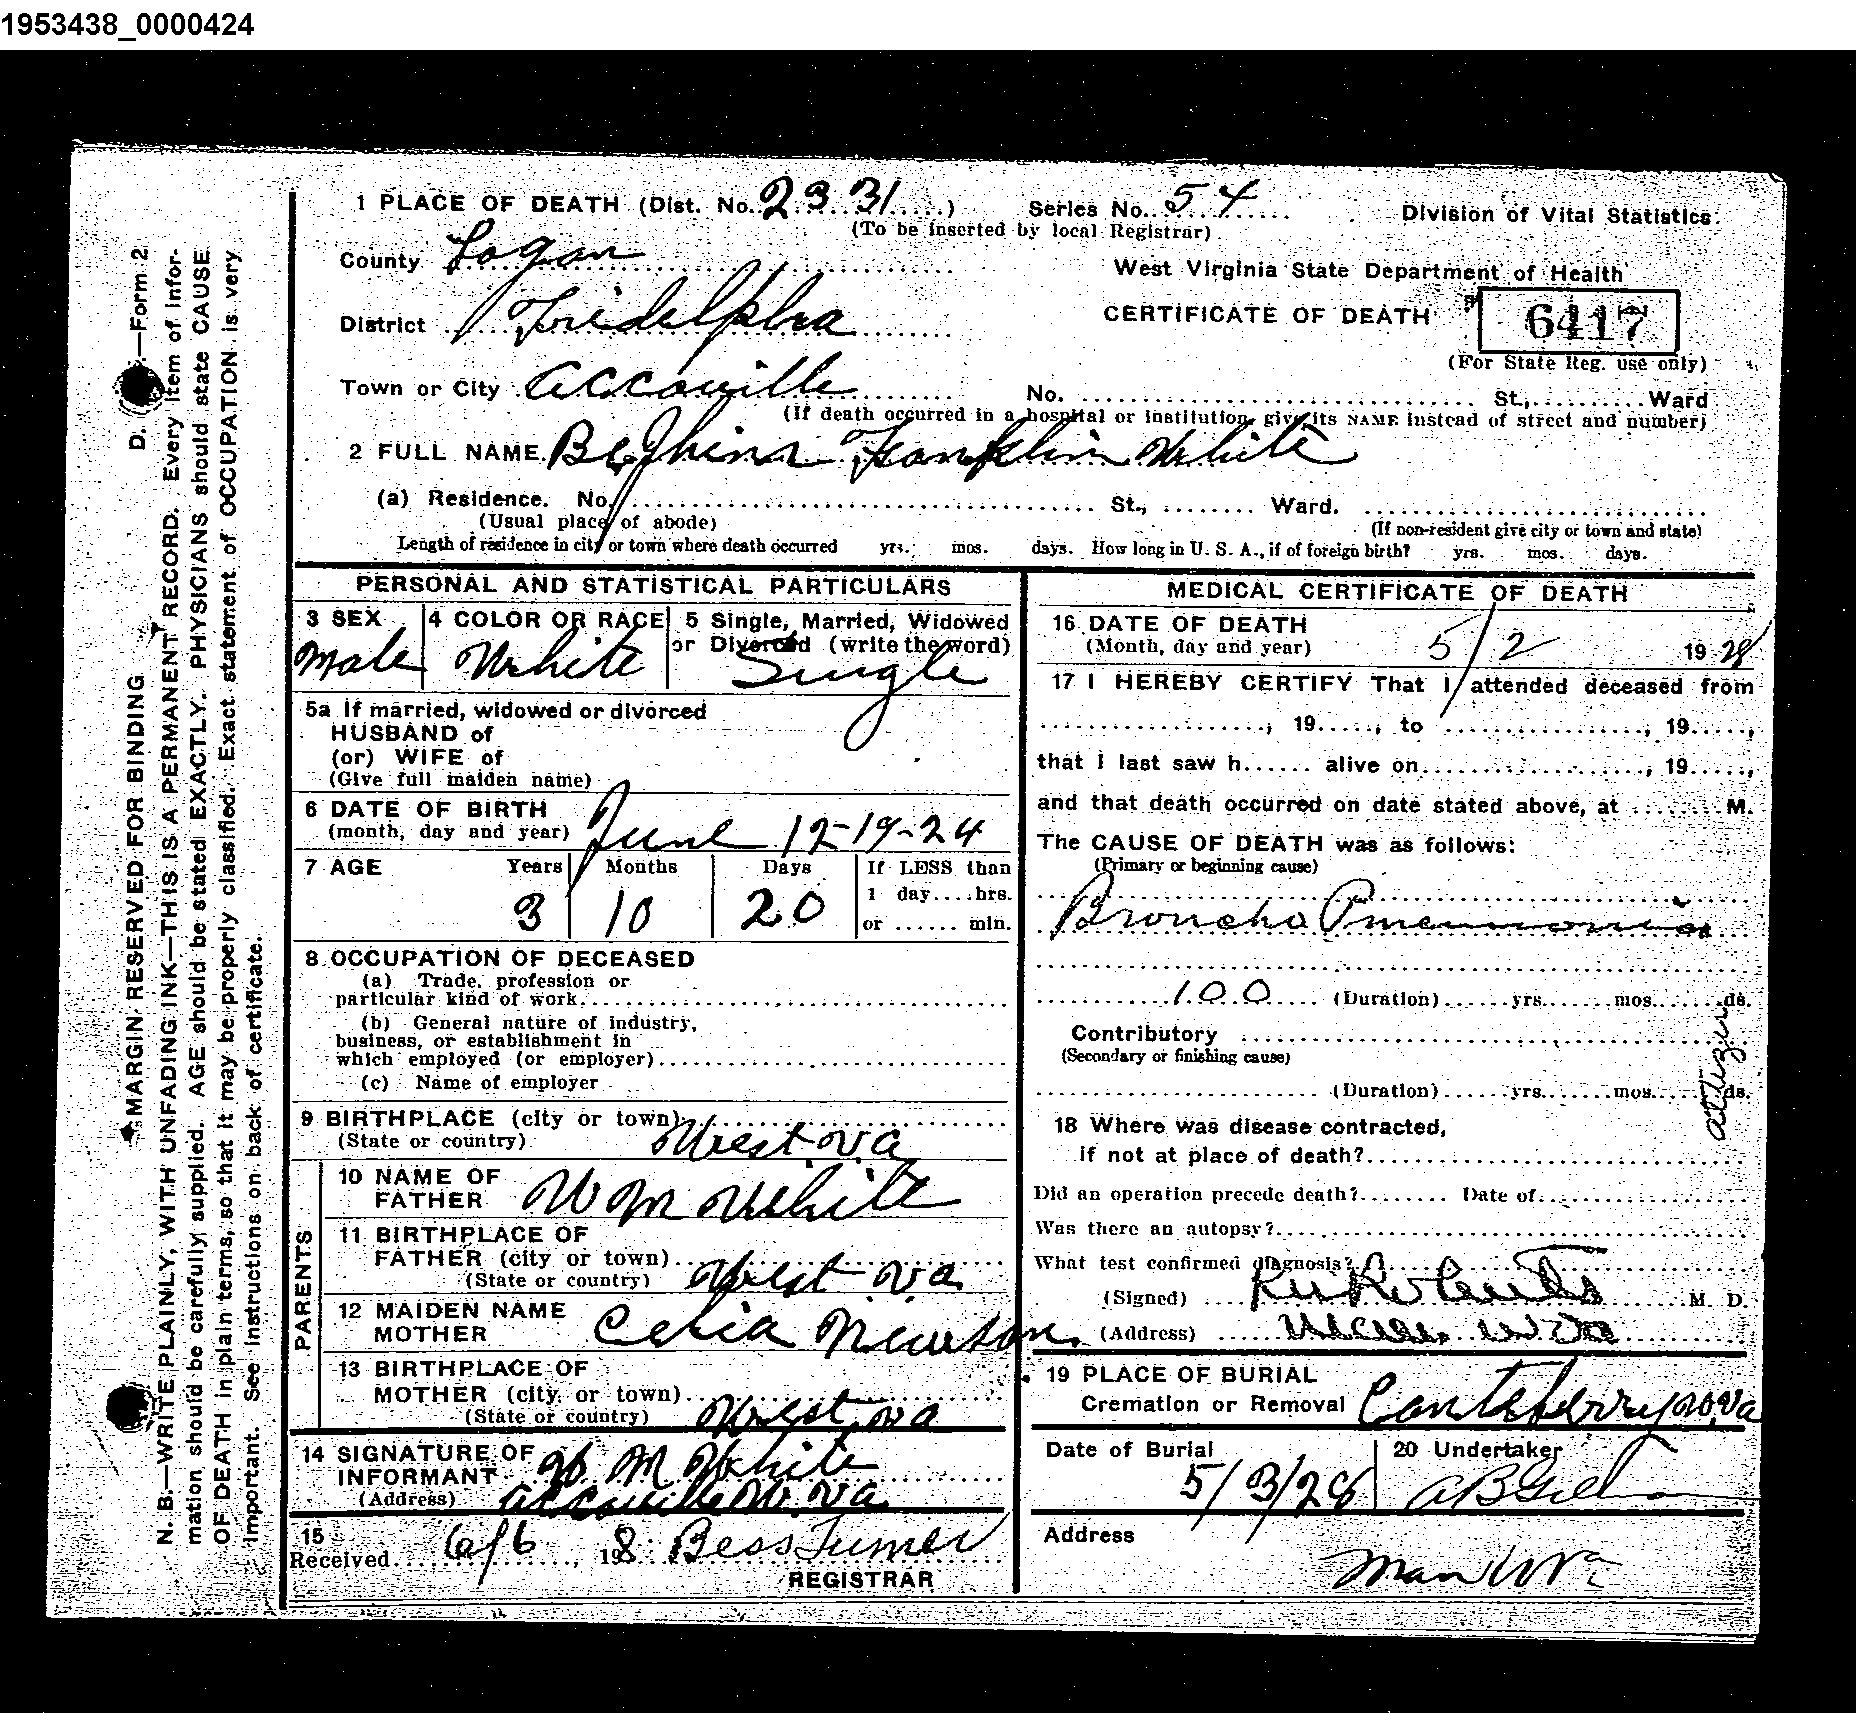 1953438_0000424
1 PLACE OF DEATH (Dist. No. 2331)
Series No. 54
(To be inserted by local Registrar)
Division of Vital Statistics
County Logan
West Virginia State Department of Health
District Tridelphia
CERTIFICATE OF DEATH
6417
(For State Reg. use only)
Town or City Accoville
No. St., Ward
(If death occurred in a hospital or institution, give its NAME instead of street and number)
2 FULL NAME Franklin White
(a) Residence. No. St., Ward.
(Usual place of abode)
(If non-resident give city or town and state)
Length of residence in city or town where death occurred yrs. mos. days. How long in U. S. A., if of foreign birth? yrs. mos. days.
PERSONAL AND STATISTICAL PARTICULARS
3 SEX
Male
4 COLOR OR RACE
White
5 Single, Married, Widowed
or Divorced (write the word)
Single
5a If married, widowed or divorced
HUSBAND of
(or) WIFE of
(Give full maiden name)
6 DATE OF BIRTH
(month, day and year) June 12-19-24
7 AGE
Years Months Days
3 10 20
If LESS than
1 day....hrs.
or ...... min.
8 OCCUPATION OF DECEASED
(a) Trade, profession or
particular kind of work
(b) General nature of industry,
business, or establishment in
which employed (or employer)
(c) Name of employer
9 BIRTHPLACE (city or town)
(State or country) West Va
PARENTS
10 NAME OF
FATHER W M White
11 BIRTHPLACE OF
FATHER (city or town)
(State or country) West Va
12 MAIDEN NAME
MOTHER Celia Newson
13 BIRTHPLACE OF
MOTHER (city or town)
(State or country) West Va
14 SIGNATURE OF
INFORMANT W M White
(Address) Accoville W Va
15
Received 6/6, 198 Bess Turner
REGISTRAR
MEDICAL CERTIFICATE OF DEATH
16 DATE OF DEATH
(Month, day and year) 5/2 1928
17 I HEREBY CERTIFY That I attended deceased from
, 19....., to , 19.....,
that I last saw h...... alive on , 19.....,
and that death occurred on date stated above, at M.
The CAUSE OF DEATH was as follows:
(Primary or beginning cause)
Broncho Pneumonia
100 (Duration) yrs. mos. ds.
Contributory
(Secondary or finishing cause)
(Duration) yrs. mos. ds.
18 Where was disease contracted,
if not at place of death?
Did an operation precede death? Date of
Was there an autopsy?
What test confirmed diagnosis?
(Signed) M. D.
(Address)
19 PLACE OF BURIAL
Cremation or Removal
Date of Burial
5/3/28
20 Undertaker
Address
Man W Va
D. .—Form 2
MARGIN RESERVED FOR BINDING
N. B.—WRITE PLAINLY, WITH UNFADING INK—THIS IS A PERMANENT RECORD. Every item of infor-
mation should be carefully supplied. AGE should be stated EXACTLY. PHYSICIANS should state CAUSE
OF DEATH in plain terms, so that it may be properly classified. Exact statement of OCCUPATION is very
important. See instructions on back of certificate.